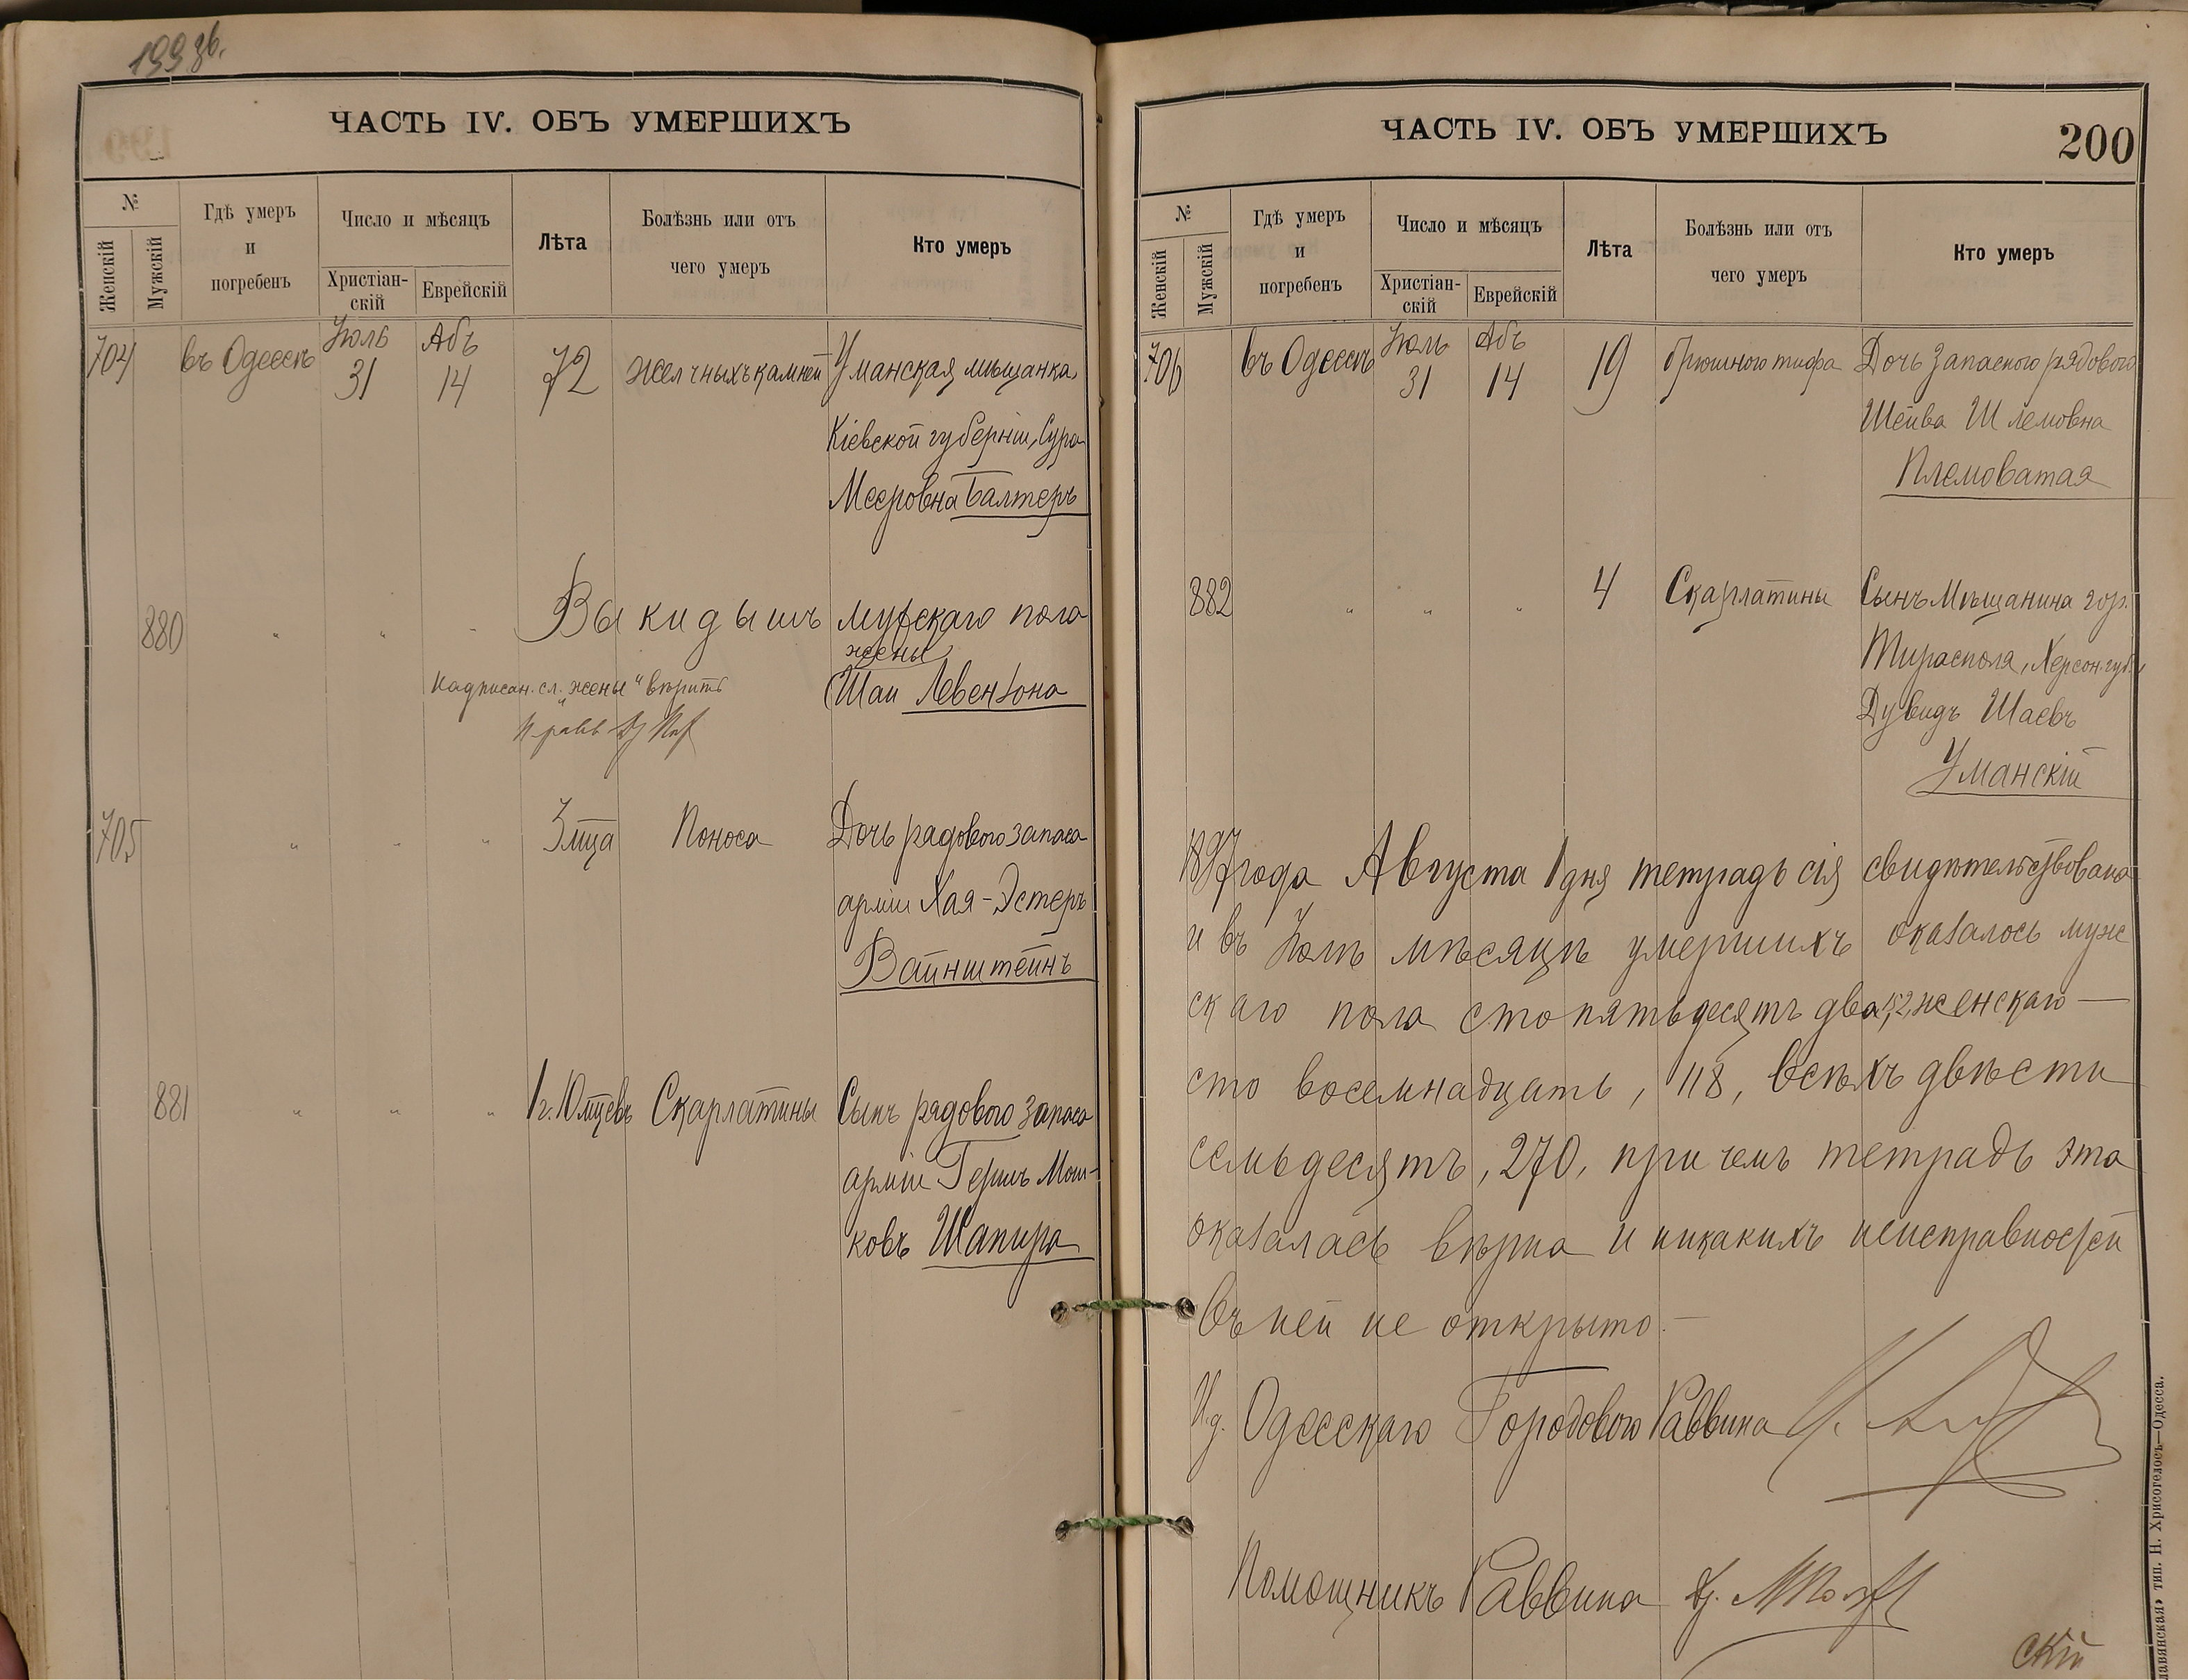 199 об.
ЧАСТЬ IV. ОБЪ УМЕРШИХЪ
№
Женскій
Мужскій
Гдѣ умеръ
и
погребенъ
Число и мѣсяцъ
Христіан-
скій
Еврейскій
Лѣта
Болѣзнь или отъ
чего умеръ
Кто умеръ
704 въ Одессѣ Іюль 31 Абъ 14 72 желчныхъ камней Уманская мѣщанка,
Кіевской губерніи, Сура
Мееровна Балтеръ
880 " " " Выкидышъ мужскаго пола
жены
Шаи Левензона
надписан. сл. "жены" вѣрить
705 " " " 3 мца Поноса Дочь рядового запаса
арміи Хая-Эстеръ
Вайнштейнъ
881 " " " 1 г. 10 мцевъ Скарлатины Сынъ рядового запаса
арміи Гершъ Мош-
ковъ Шапира
ЧАСТЬ IV. ОБЪ УМЕРШИХЪ
200
№
Женскій
Мужскій
Гдѣ умеръ
и
погребенъ
Число и мѣсяцъ
Христіан-
скій
Еврейскій
Лѣта
Болѣзнь или отъ
чего умеръ
Кто умеръ
706 въ Одессѣ Іюль 31 Абъ 14 19 брюшного тифа Дочь запасного рядового
Шейва Шлемовна
Племоватая
882 " " " 4 Скарлатины Сынъ Мѣщанина гор.
Тирасполя, Херсон. губ.,
Дувидъ Шаевъ
Уманскій
1897 года Августа 1 дня тетрадь сія свидѣтельствована
и въ Іюлѣ мѣсяцѣ умершихъ оказалось муж
скаго пола сто пятьдесятъ два, 152, женскаго —
сто восемнадцать, 118, всѣхъ двѣсти
семьдесятъ, 270, при чемъ тетрадь эта
оказалась вѣрна и никакихъ неисправностей
въ ней не открыто.—
И.д. Одесскаго Городового Раввина
Помощникъ Раввина
скій
тип. Н. Хрисогелосъ—Одесса.